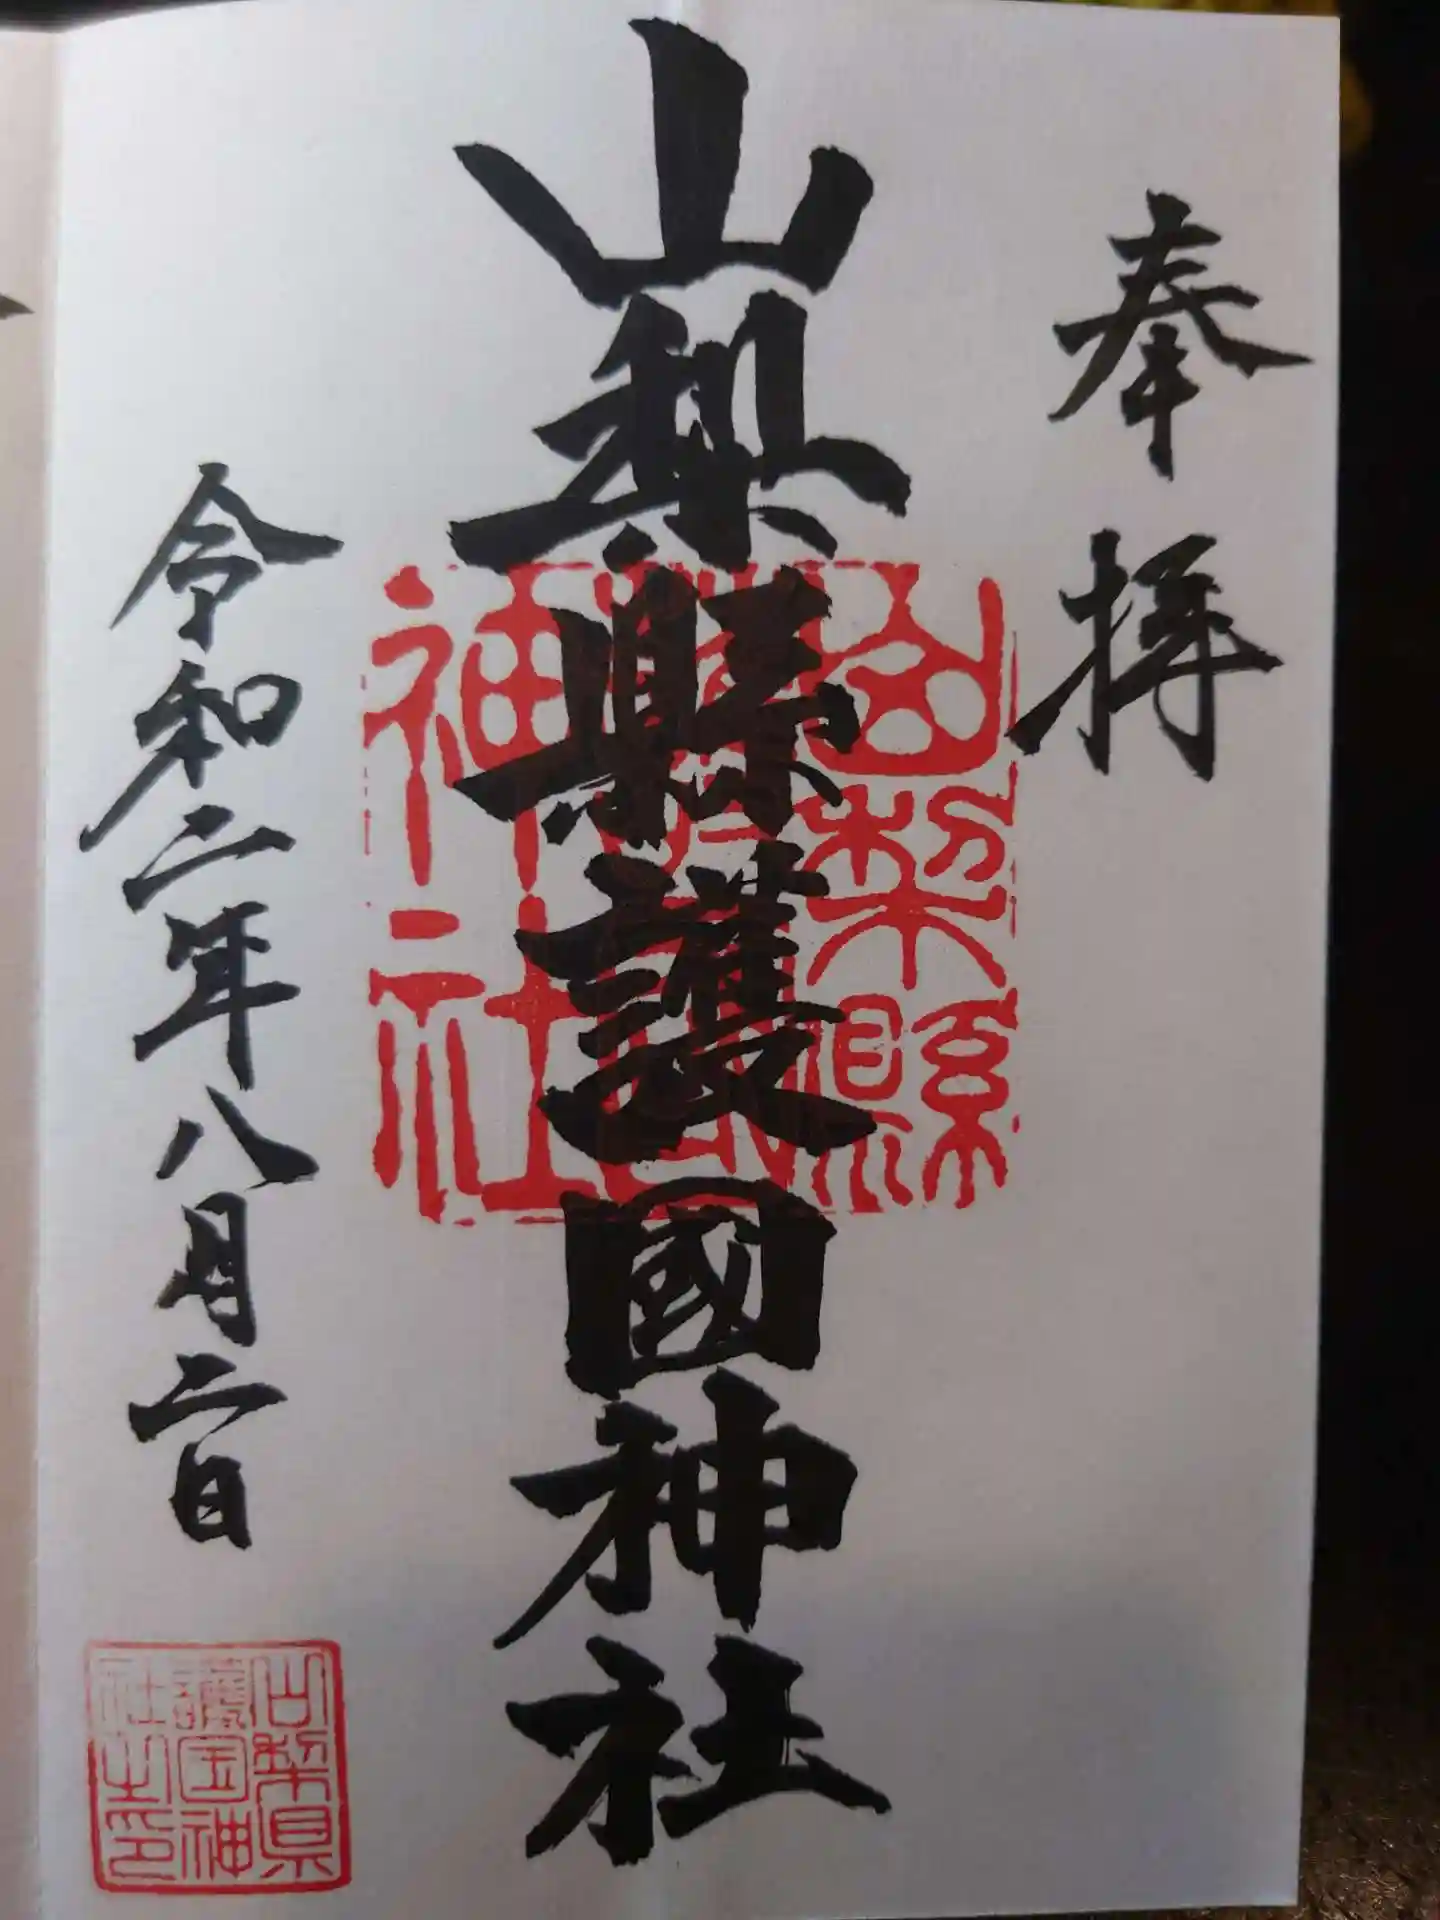 奉拝
山梨縣護國神社
山梨縣
護國
神社
令和二年八月二日
山梨県
護国神
社之印